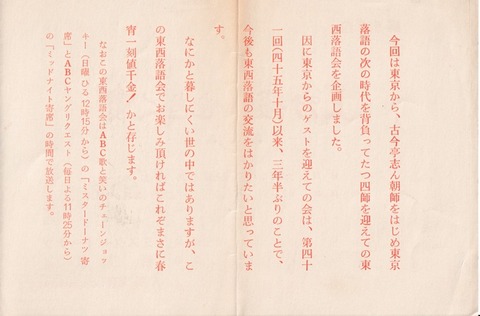 今回は東京から、古今亭志ん朝師をはじめ東京
落語の次の時代を背負ってたつ四師を迎えての東
西落語会を企画しました。
因に東京からのゲストを迎えての会は、第四十
一回(四十五年十月)以来、三年半ぶりのことで、
今後も東西落語の交流をはかりたいと思っていま
す。
なにかと暮しにくい世の中ではありますが、こ
の東西落語会でお楽しみ頂ければこれぞまさに春
宵一刻値千金!かと存じます。
なおこの東西落語会はABC歌と笑いのチェーンジョッ
キー(日曜ひる12時15分から)の「ミスタードーナツ寄
席」とABCヤングリクエスト(毎日よる11時25分から)
の「ミッドナイト寄席」の時間で放送します。